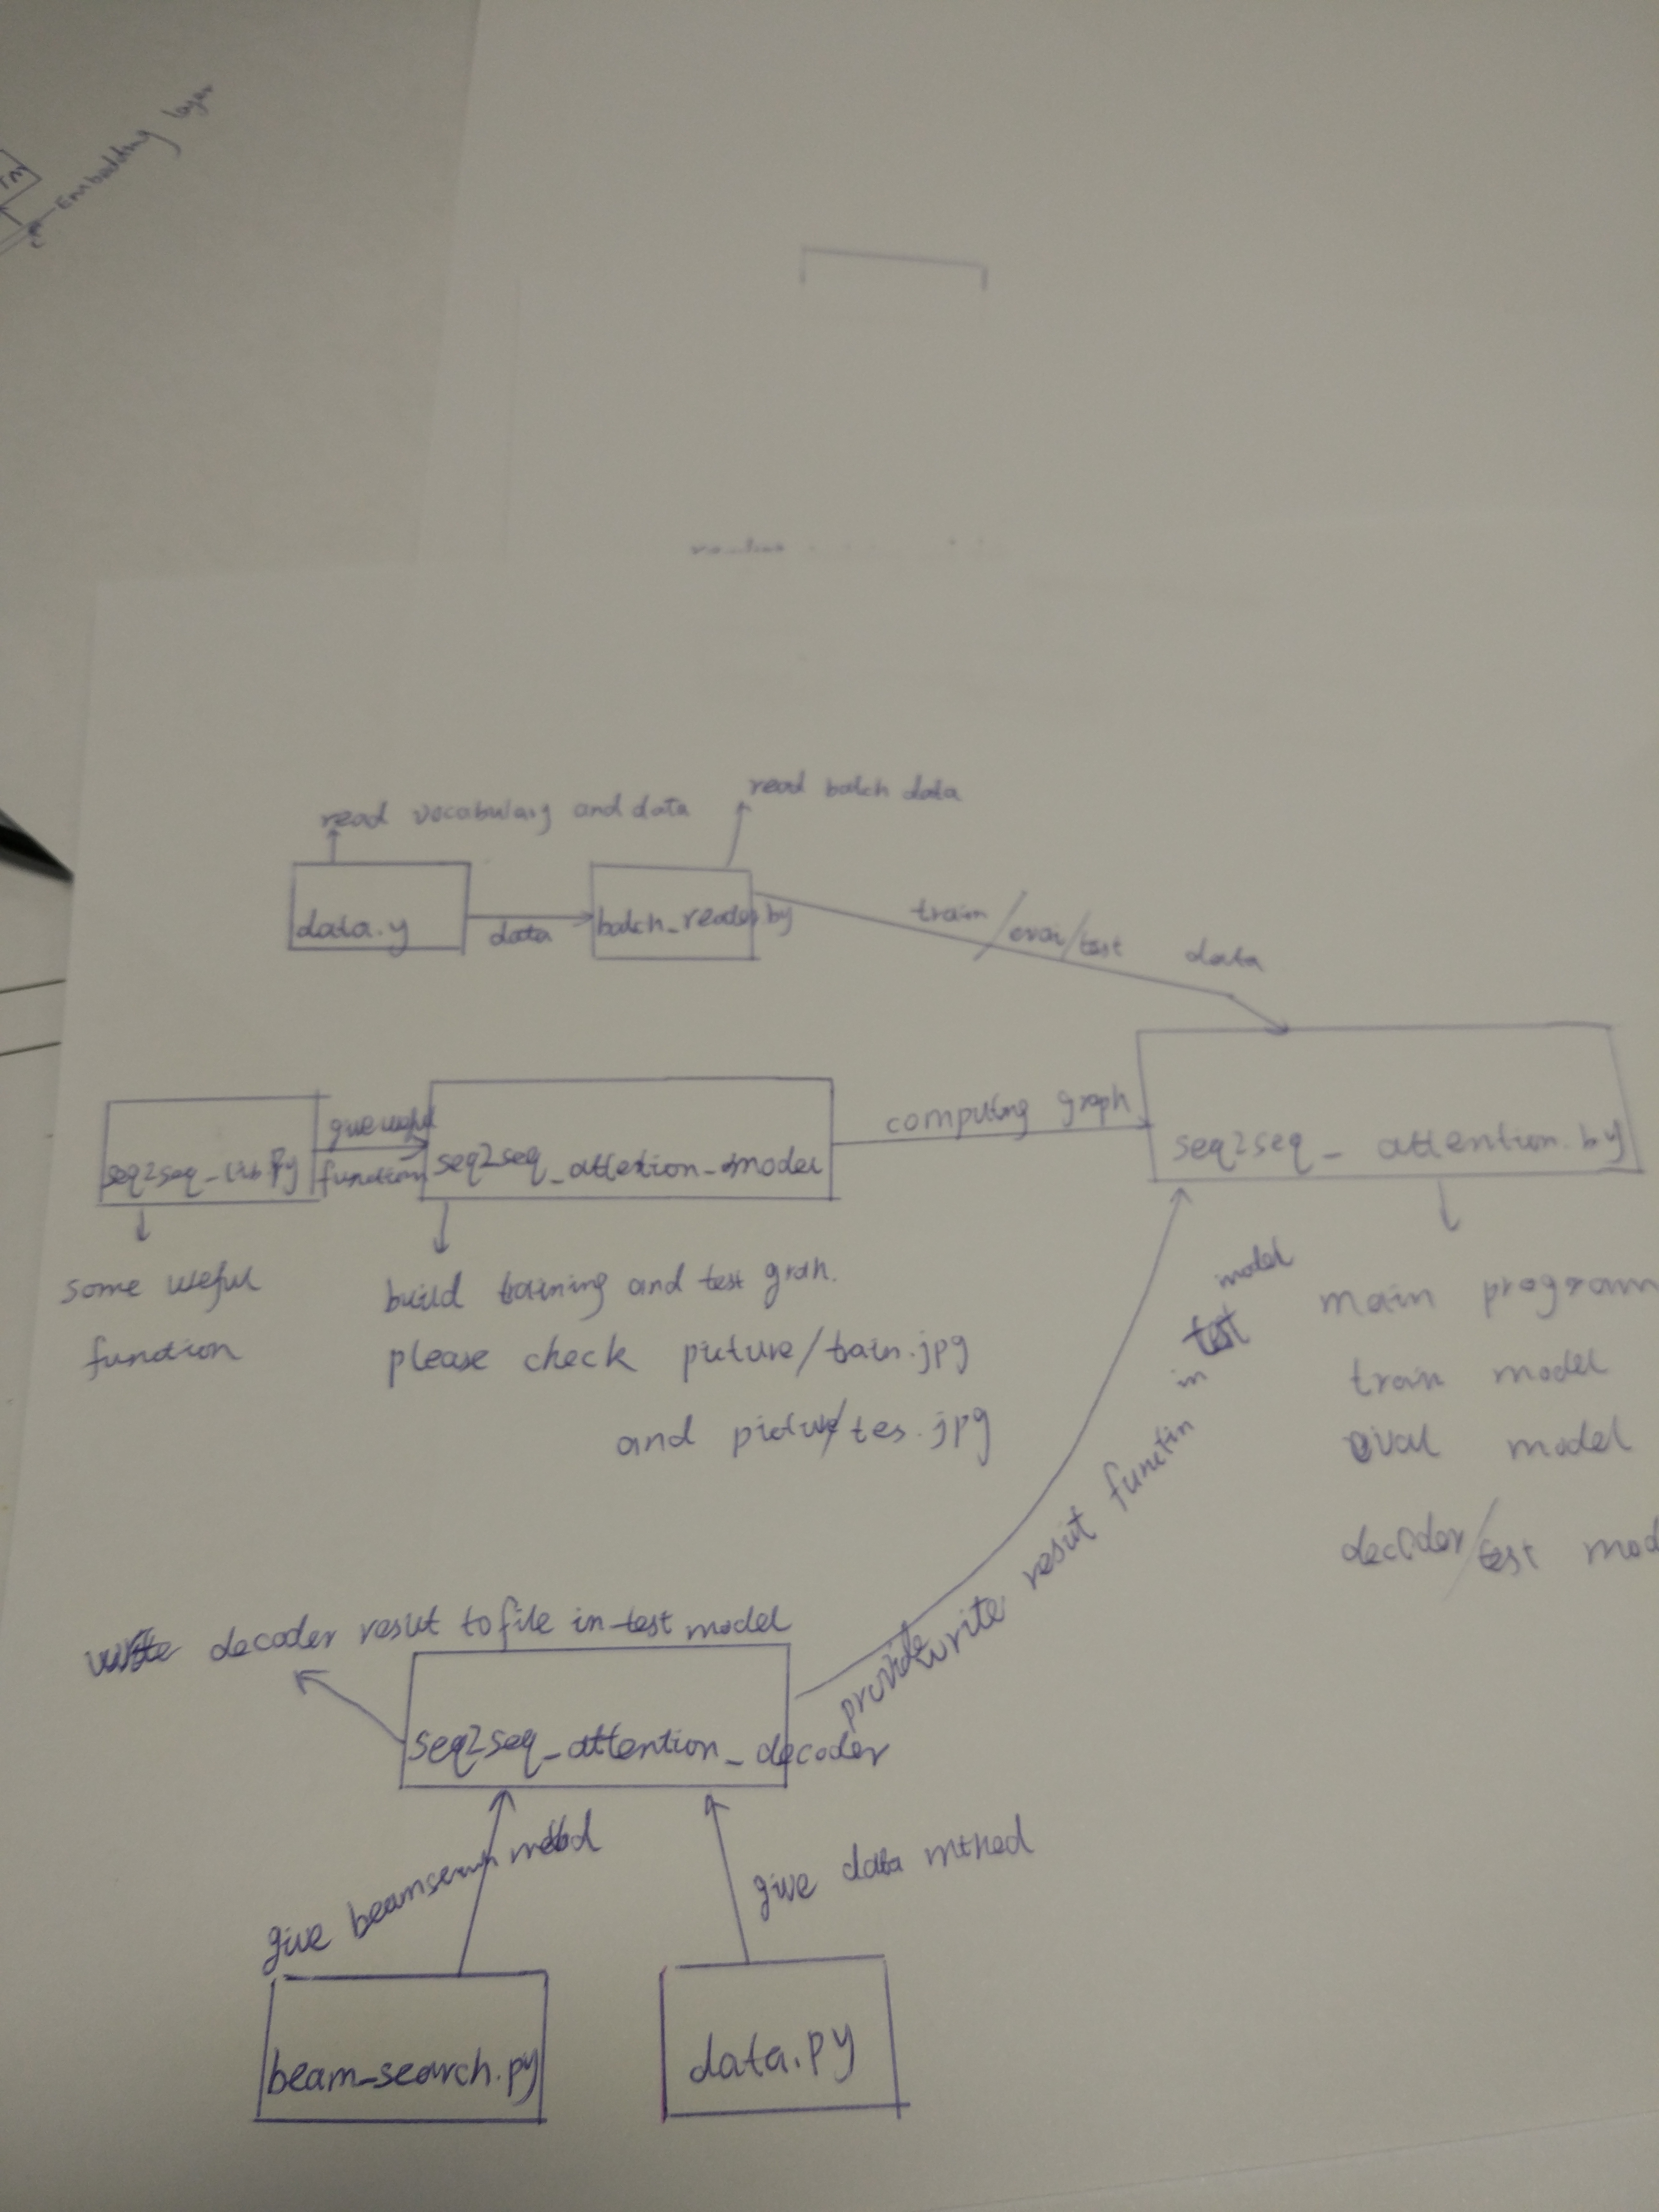 Embedding layer
read vocabulary and data
read batch data
data.y
data
batch_reader.by
train/eval/test data
seq2seq_lib.py
give useful
function
seq2seq_attention_model
computing graph
seq2seq_attention.by
some useful
function
build training and test grah.
please check picture/tain.jpg
and picture/tes.jpg
main program
train model
eval model
decoder/test mod
provide write result functin in test model
write decoder result to file in test model
seq2seq_attention_decoder
give beamsearch
give data mthed
beam_search.py
data.py